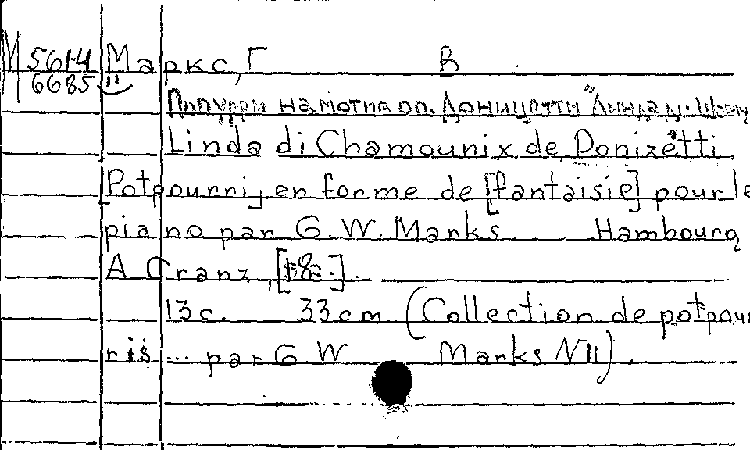 М 5614 Маркс, Г В
6685
Попурри на мотив оп. Доницетти "Линда
Linda di Chamounix de Donizetti
[Potpourri] en forme de [fantaisie] pour le
piano par G. W. Marks Hambourg
A Cranz,
13 c. 33 cm (Collection de potpour
ris ... par G W Marks N 11).